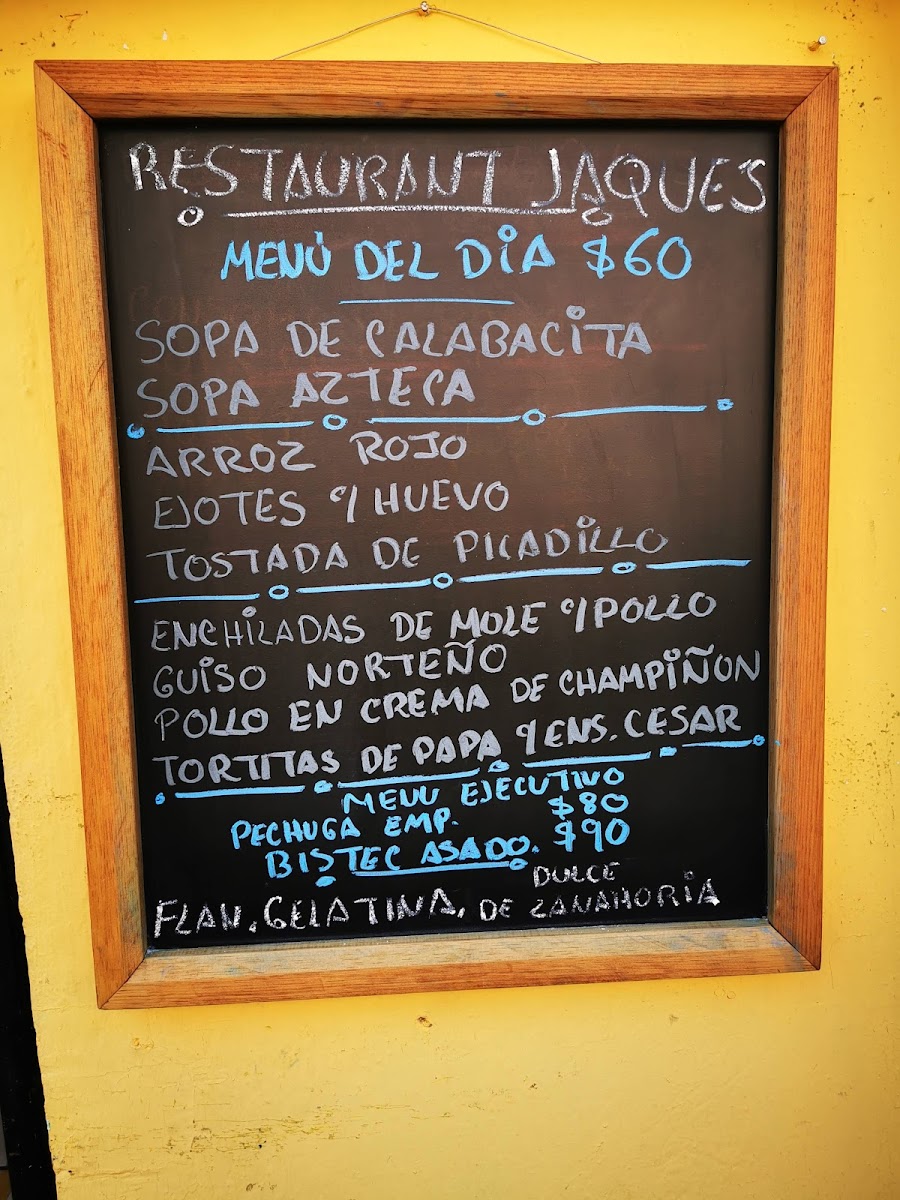 RESTAURANT JAQUE'S
MENÚ DEL DIA $60
SOPA DE CALABACITA
SOPA AZTECA
ARROZ ROJO
EJOTES C/HUEVO
TOSTADA DE PICADILLO
ENCHILADAS DE MOLE C/POLLO
GUISO NORTEÑO
POLLO EN CREMA DE CHAMPIÑON
TORTITAS DE PAPA C/ENS. CESAR
MENU EJECUTIVO
PECHUGA EMP. $80
BISTEC ASADO. $90
FLAN, GELATINA, DULCE DE ZANAHORIA